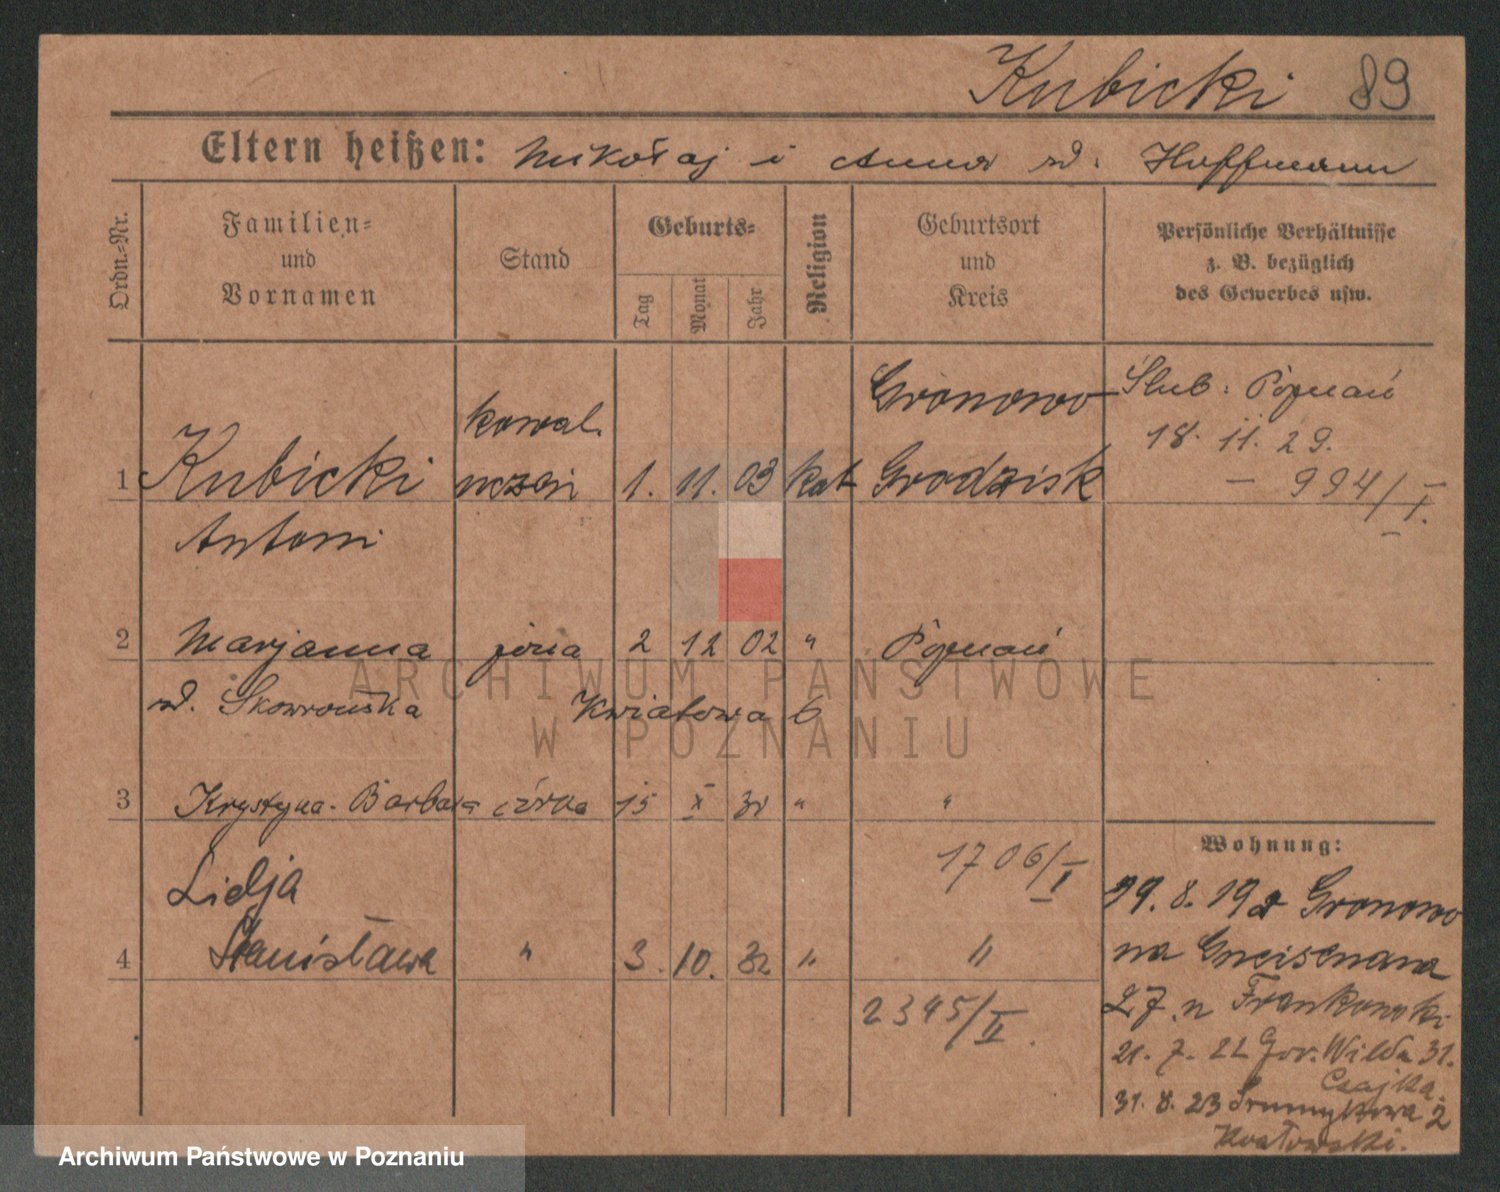 Kubicki 89
Eltern heißen: Mikołaj i Anna zd. Hoffmann
Ordn.-Nr.
Familien-
und
Vornamen
Stand
Geburts-
Tag
Monat
Jahr
Religion
Geburtsort
und
Kreis
Persönliche Verhältnisse
z. B. bezüglich
des Gewerbes usw.
kowal.
Gronowo
Ślub: Poznań
18. 11. 29.
1 Kubicki uczeń 1. 11. 03 kat Grodzisk
— 994/I.
Antoni
2 Marjanna żona 2 12 02 " Poznań
zd. Skowrońska Kwiatowa 6
3 Krystyna-Barbara córka 15 X 30 " "
1706/I
Lidja
4 Stanisława " 3. 10. 32 " "
2345/II
Wohnung:
29. 8. 19 z Gronowo
na Gneisenaua
27 u Frankowski
21. 7. 22 Gór. Wilda 31.
Czajka.
31. 8. 23 Strumykowa 2
ARCHIWUM PAŃSTWOWE
W POZNANIU
Archiwum Państwowe w Poznaniu